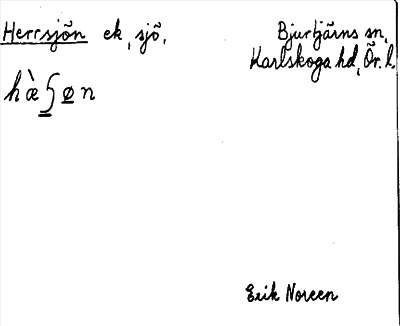 Herrsjön ek, sjö.
Bjurtjärns sn,
Karlskoga hd, Ör. l.
hæ̀ʃøn
Erik Noreen